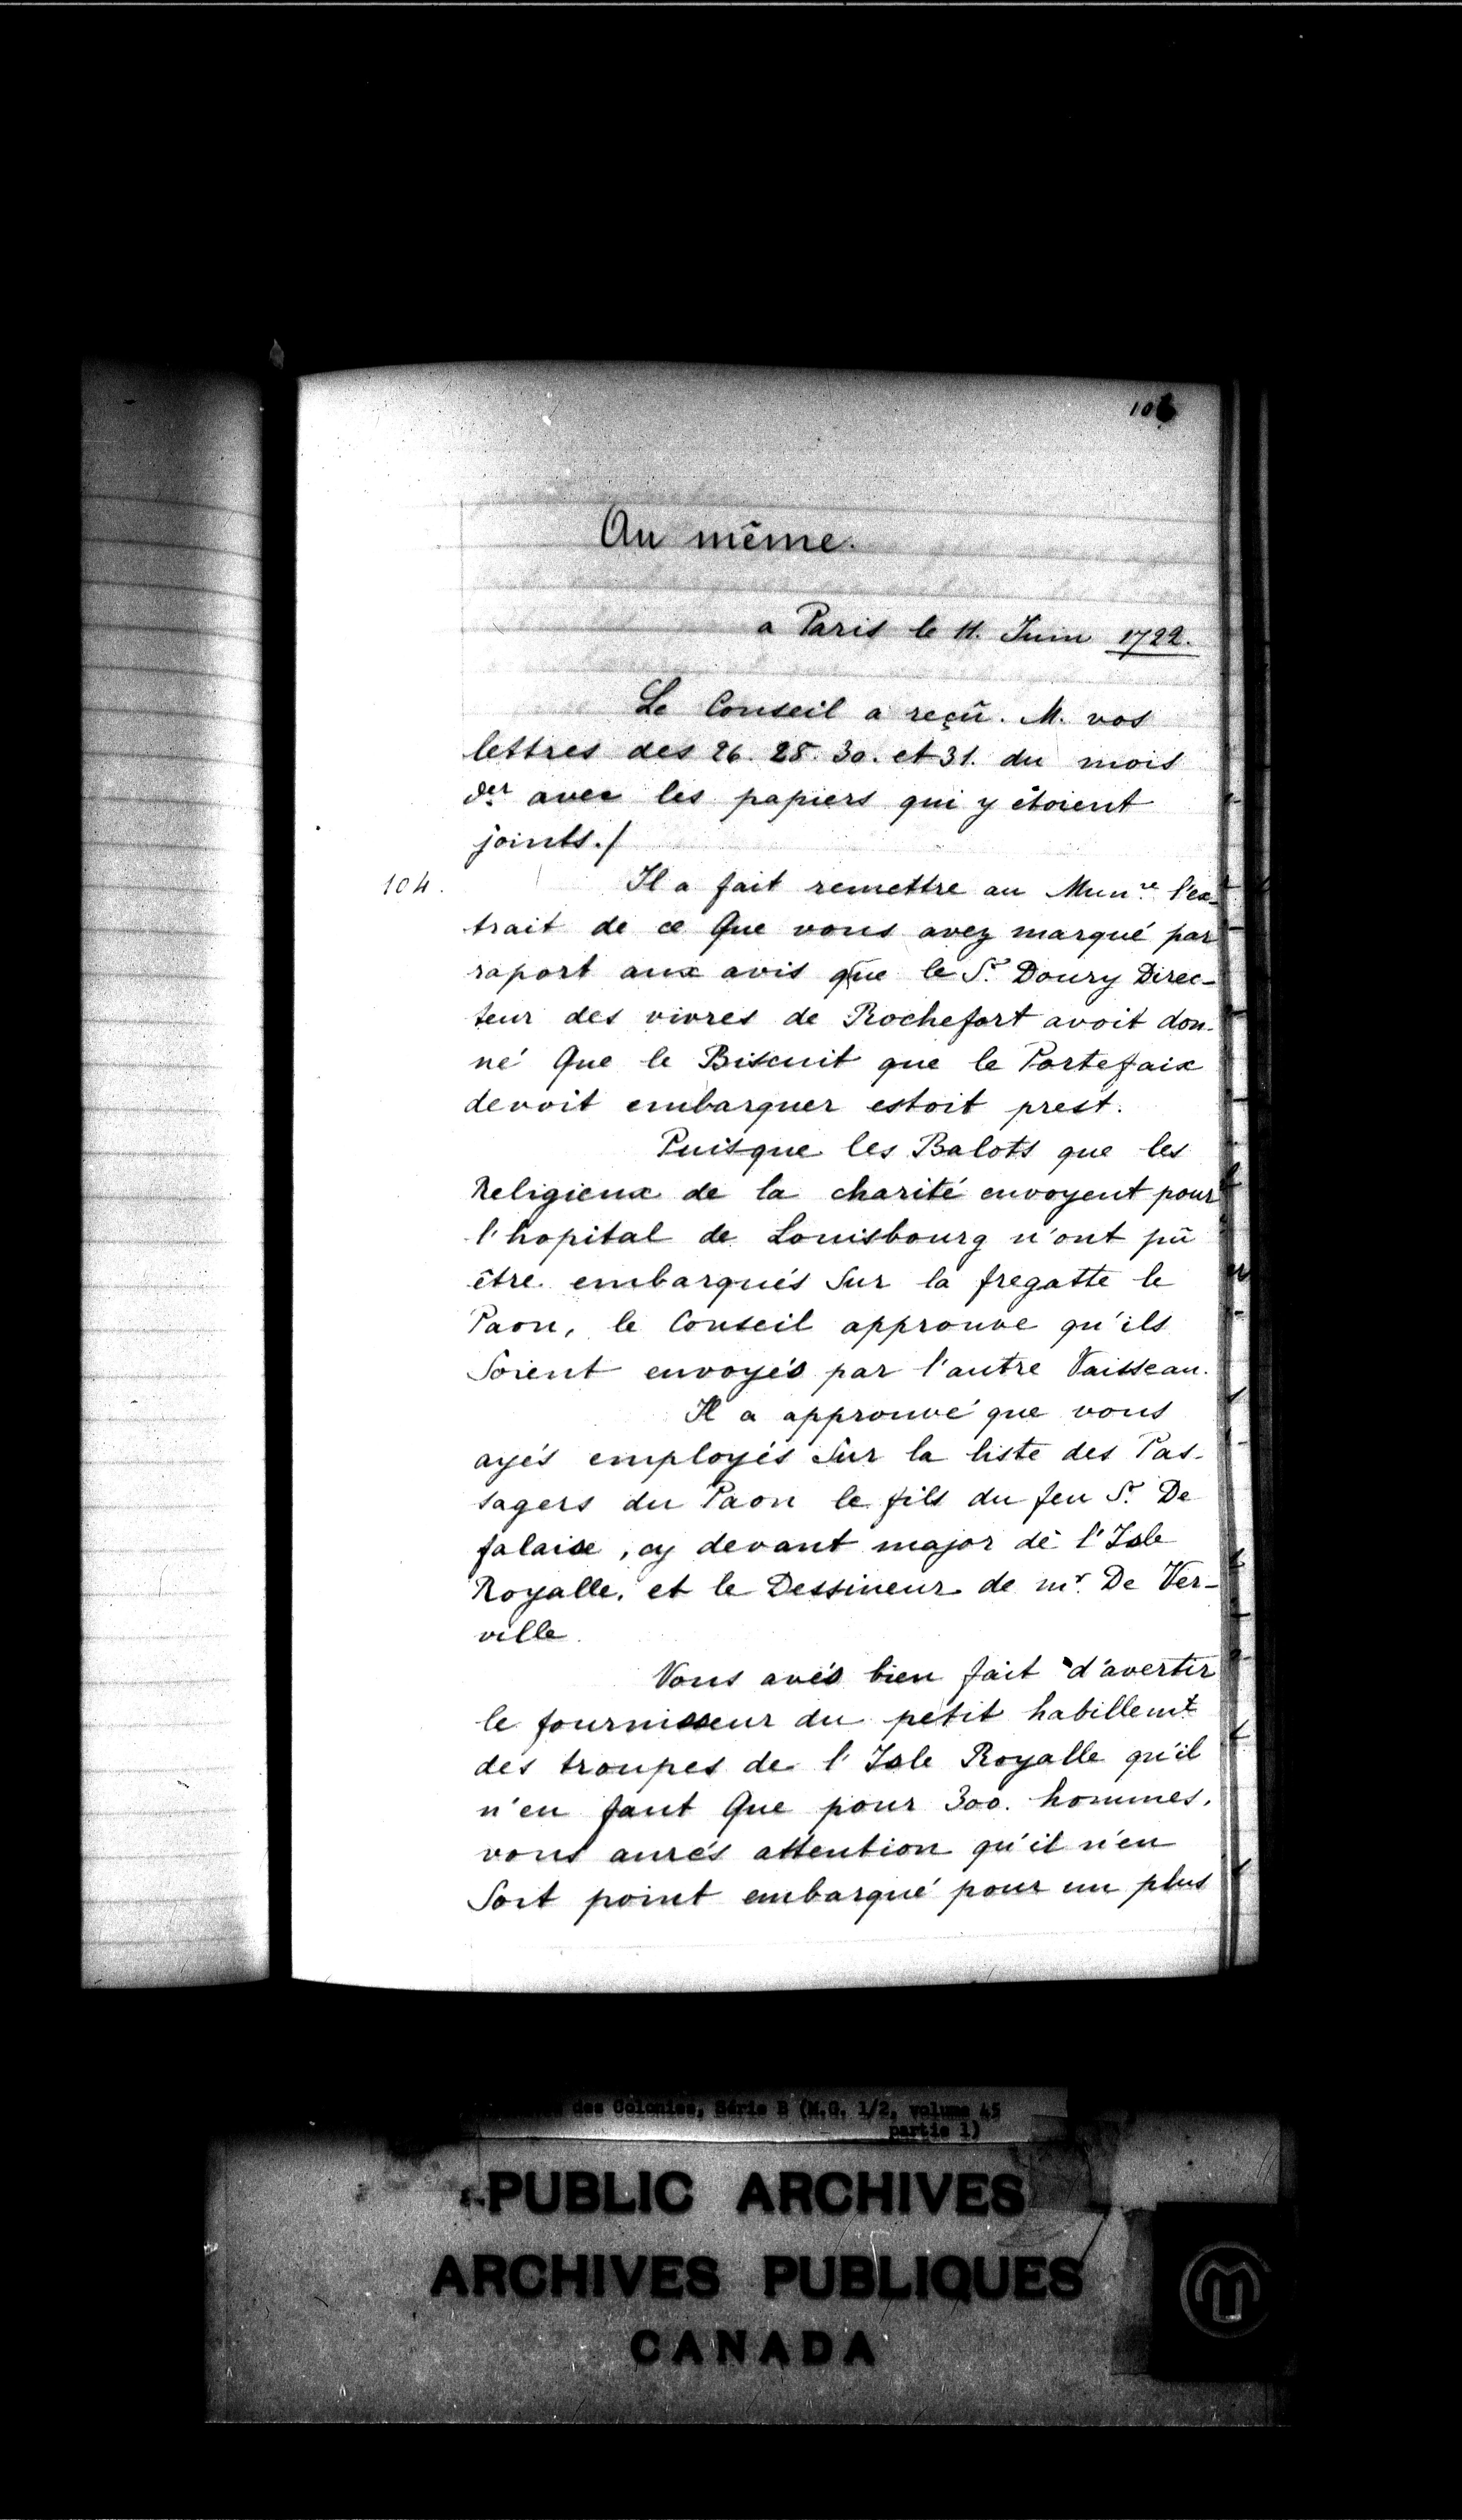 106
Au même.
a Paris le 11. Juin 1722.
Le Conseil a reçû. M. vos
lettres des 26. 28. 30. et 31. du mois
der avec les papiers qui y étoient
joints./
104.
Il a fait remettre au Munre l'ex-
trait de ce Que vous avez marqué par
raport aux avis que le Sr. Doury Direc-
teur des vivres de Rochefort avoit don-
né Que le Biscuit que le Portefaix
devoit embarquer estoit prest.
Puisque les Balots que les
Religieux de la charité envoyent pour
l'hopital de Louisbourg n'ont pû
être embarqués Sur la fregatte le
Paon, le Conseil approuve qu'ils
Soient envoyés par l'autre Vaisseau.
Il a approuvé que vous
ayés employés Sur la liste des Pas-
sagers du Paon le fils du feu Sr. De
falaise, cy devant major de l'Isle
Royalle, et le Dessineur de mr. De Ver-
ville
Vous avés bien fait d'avertir
le fournisseur du petit habillemt
des troupes de l'Isle Royalle qu'il
n'en faut Que pour 300. hommes,
vous aurés attention qu'il n'en
Soit point embarqué pour un plus
des Colonies, Série B (M.G. 1/2, volume 45
partie 1)
PUBLIC ARCHIVES
ARCHIVES PUBLIQUES
CANADA